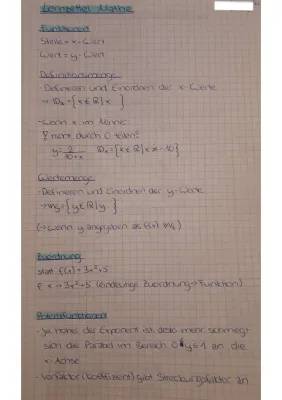 Lernzettel Mathe
Funktionen
Stelle = x-Wert
Wert = y-Wert
Definitionsmenge
- Definieren und Einordnen der x-Werte
→ ID = {x ∈ ℝ | x }
- wenn x im Nenner:
! nicht durch 0 teilen!
y = 2/10+x ID = {x ∈ ℝ | x ≠ -10}
Wertemenge
- Definieren und Einordnen der y-Werte
→ = {y ∈ ℝ | y }
(→ wenn y angegeben
Zuordnung
statt f(x) = 3x²+5
f: x → 3x²+5 (eindeutige Zuordnung → Funktion)
Potenzfunktionen
- Je höher der Exponent ist, desto mehr schmiegt
sich die Parabel im Bereich 0 y ≤ 1 an die
x-Achse
- Vorfaktor (Koeffizient) gibt Streckungsfaktor an